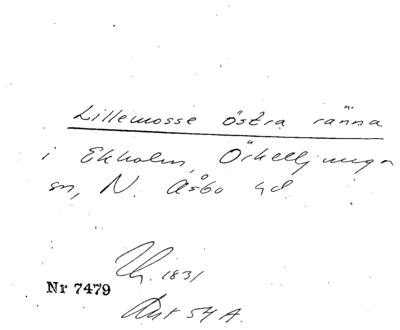 Lillemosse östra ränna
i Ekholm, Örkelljunga
sn, N. Åsbo hd
Th. 1831
Nr 7479
Akt 54 A.